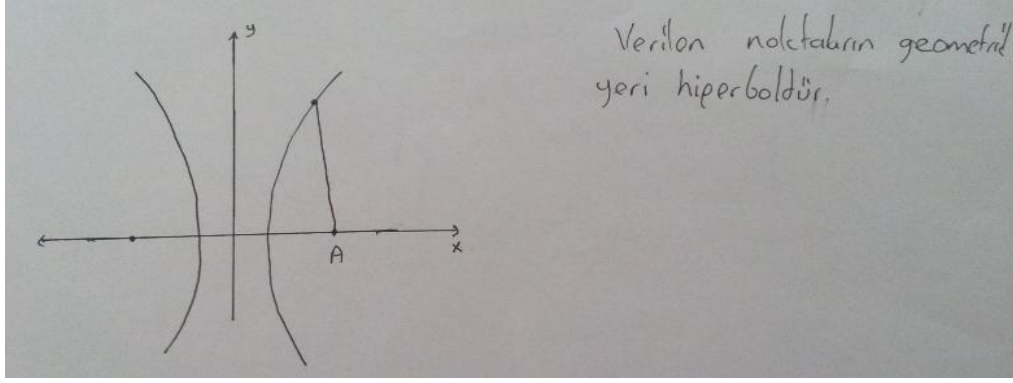 y
Verilon noktaların geometrik
yeri hiperboldür.
A
x